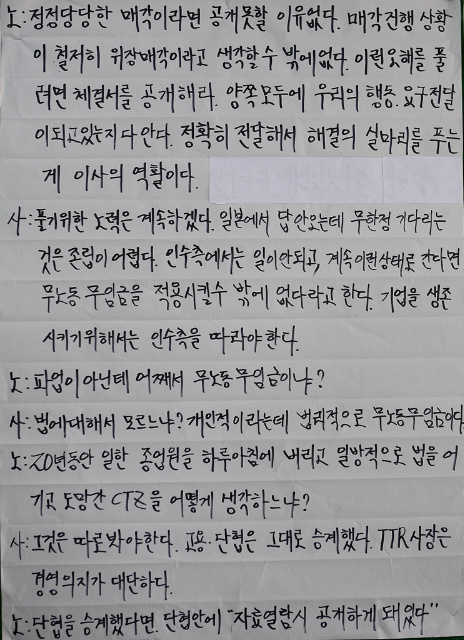 노: 정정당당한 매각이라면 공개못할 이유없다. 매각진행 상황
이 철저히 위장매각이라고 생각할수 밖에없다. 이런오해를 풀
려면 체결서를 공개해라. 양쪽모두에 우리의 행동, 요구전달
이되고있는지 다 안다. 정확히 전달해서 해결의 실마리를 푸는
게 이사의 역활이다.
사: 풀기위한 노력은 계속하겠다. 일본에서 답안오는데 무한정 기다리는
것은 존립이 어렵다. 인수측에서는 일이안되고, 계속이런상태로 간다면
무노동 무임금을 적용시킬수 밖에 없다라고 한다. 기업을 생존
시키기위해서는 인수측을 따라야한다.
노: 파업이 아닌데 어째서 무노동무임금이냐?
사: 법에대해서 모르느냐? 개인적이라는데 법리적으로 무노동무임금이다
노: 20년동안 일한 종업원을 하루아침에 버리고 일방적으로 법을 어
기고 도망간 CTZ을 어떻게 생각하느냐?
사: 그것은 따로봐야한다. 고용·단협은 그대로 승계했다. TTR사장은
경영의지가 대단하다.
노: 단협을 승계했다면, 단협안에 "자료열람시 공개하게 돼있다"